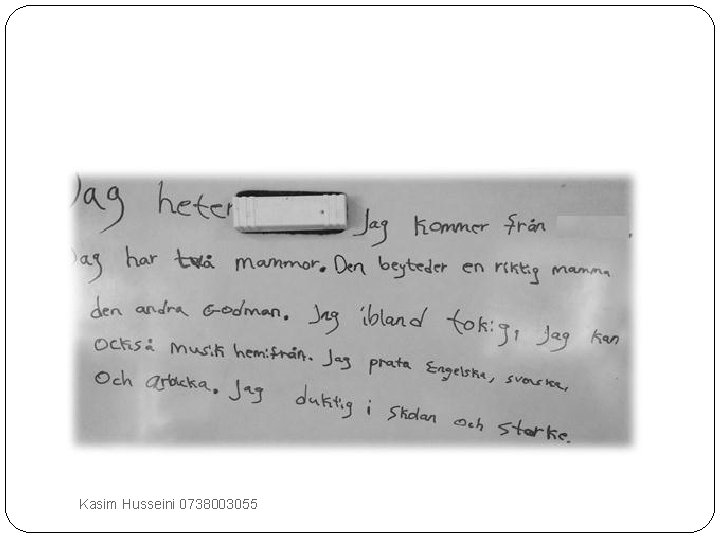 Jag heter Jag kommer från .
Jag har två mammor. Den beyteder en riktig mamma
den andra Godman. Jag ibland tokig, Jag kan
också musik hemifrån. Jag prata Engelska, svenska,
och arbicka. Jag duktig i skolan och starke.
Kasim Husseini 0738003055